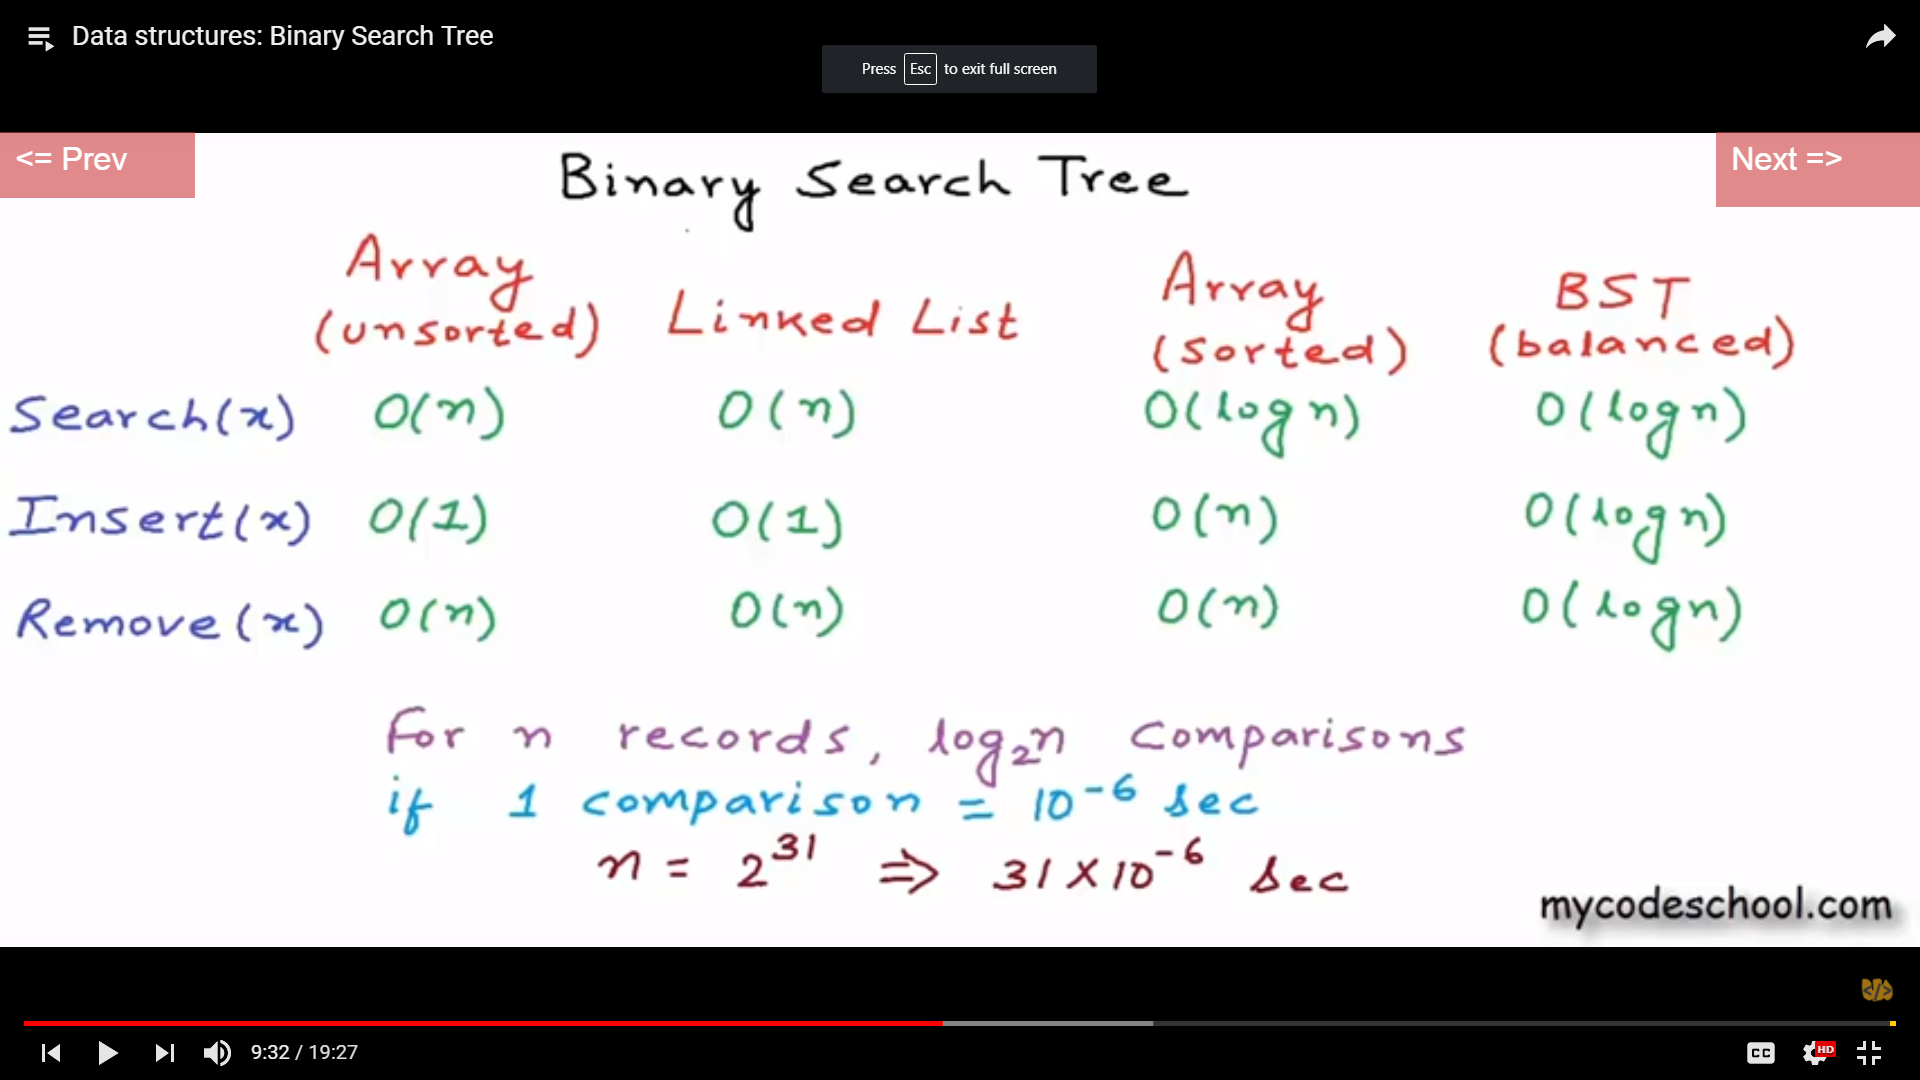 Data structures: Binary Search Tree
Press Esc to exit full screen
<= Prev
Next =>
Binary Search Tree
Array (unsorted) Linked List Array (sorted) BST (balanced)
Search(x) O(n) O(n) O(log n) O(log n)
Insert(x) O(1) O(1) O(n) O(log n)
Remove(x) O(n) O(n) O(n) O(log n)
For n records, log₂n comparisons
if 1 comparison = 10⁻⁶ sec
n = 2³¹ ⇒ 31 × 10⁻⁶ sec
mycodeschool.com
</>
9:32 / 19:27
CC
HD